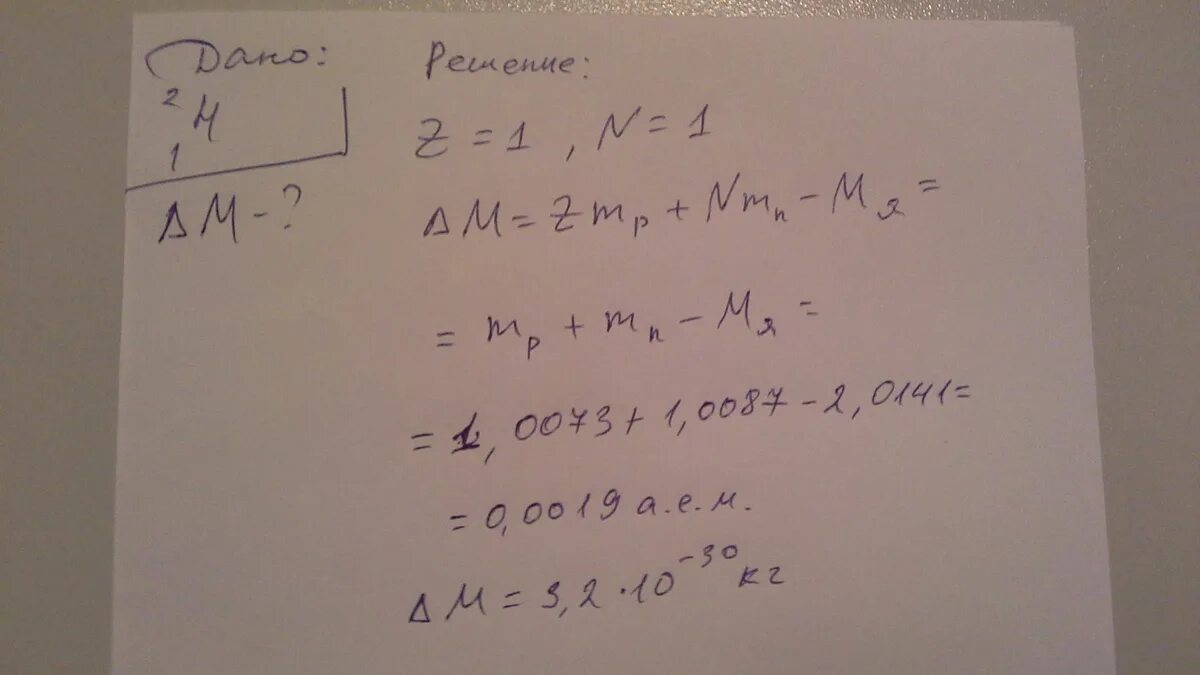 Дано:
²₁H
ΔM - ?
Решение:
Z = 1, N = 1
ΔM = Zmₚ + Nmₙ - Mя =
= mₚ + mₙ - Mя =
= 1,0073 + 1,0087 - 2,0141 =
= 0,0019 а.е.м.
ΔM = 3,2 · 10⁻³⁰ кг